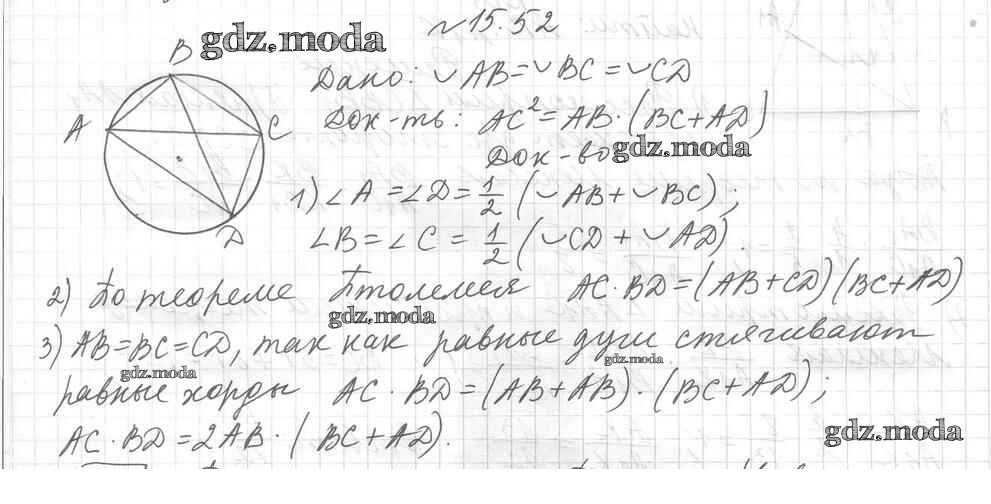 №15.52
gdz.moda
B
A
C
D
Дано: ◡AB=◡BC=◡CD
Док-ть: AC²=AB·(BC+AD)
Док-во
gdz.moda
1) ∠A=∠D=1/2(◡AB+◡BC);
∠B=∠C=1/2(◡CD+◡AD).
2) По теореме Птолемея AC·BD=(AB+CD)(BC+AD)
gdz.moda
3) AB=BC=CD, так как равные дуги стягивают
gdz.moda
gdz.moda
равные хорды AC·BD=(AB+AB)·(BC+AD);
AC·BD=2AB·(BC+AD).
gdz.moda